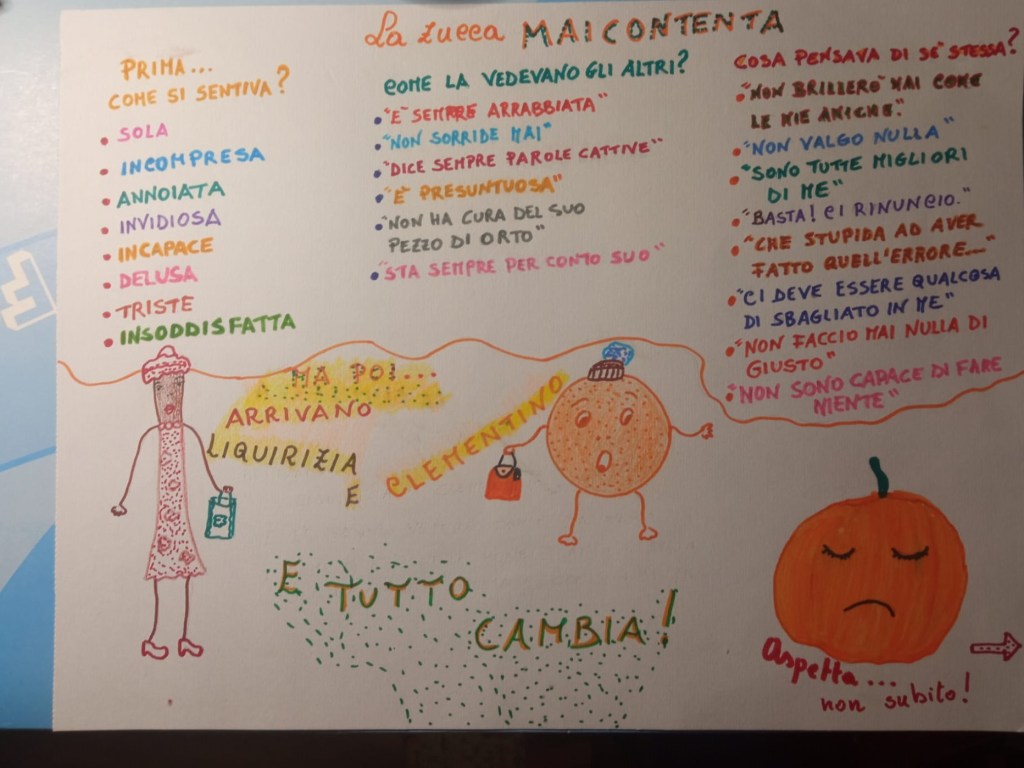 La zucca MAICONTENTA
PRIMA...
COME SI SENTIVA?
• SOLA
• INCOMPRESA
• ANNOIATA
• INVIDIOSA
• INCAPACE
• DELUSA
• TRISTE
• INSODDISFATTA
COME LA VEDEVANO GLI ALTRI?
• "È SEMPRE ARRABBIATA"
• "NON SORRIDE MAI"
• "DICE SEMPRE PAROLE CATTIVE"
• "È PRESUNTUOSA"
• "NON HA CURA DEL SUO
PEZZO DI ORTO"
• "STA SEMPRE PER CONTO SUO"
COSA PENSAVA DI SÈ STESSA?
• "NON BRILLERÒ MAI COME
LE MIE AMICHE."
• "NON VALGO NULLA"
• "SONO TUTTE MIGLIORI
DI ME"
• "BASTA! CI RINUNCIO."
• "CHE STUPIDA AD AVER
FATTO QUELL'ERRORE..."
• "CI DEVE ESSERE QUALCOSA
DI SBAGLIATO IN ME"
• "NON FACCIO MAI NULLA DI
GIUSTO"
• "NON SONO CAPACE DI FARE
NIENTE"
MA POI...
ARRIVANO
LIQUIRIZIA
E
CLEMENTINO
E TUTTO
CAMBIA!
Aspetta...
non subito!